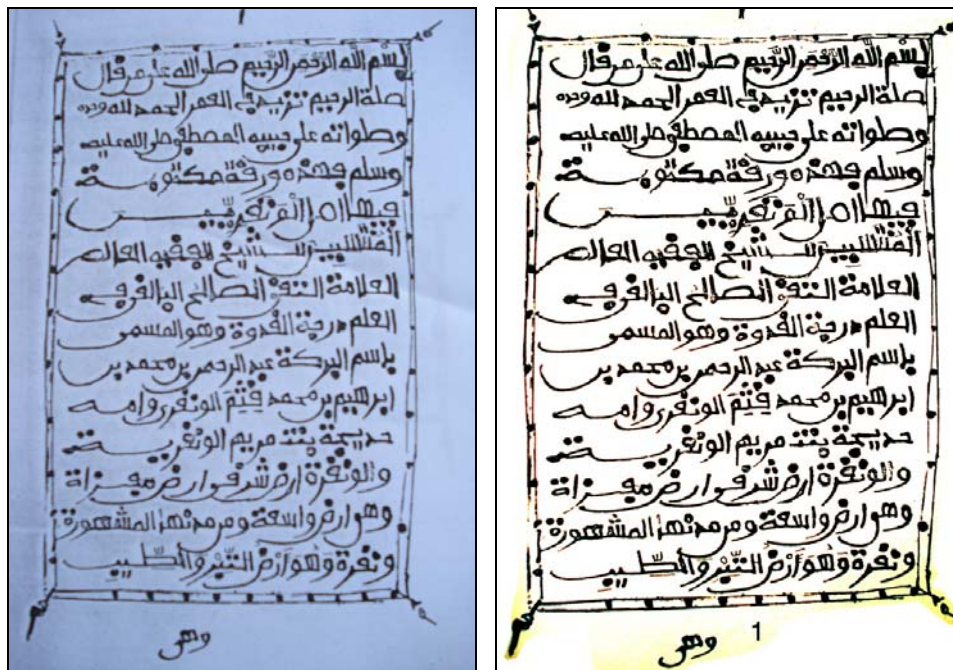 بسم الله الرحمن الرحيم صلى الله على من قال
صلة الرحيم تزيد في العمر الحمد لله وحده
وصلواته على حبيبه المصطفى صلى الله عليه
وسلم فهذه ورقة مكتوبة
فيها اصل الونقريين
المنتسبين للشيخ الفقيه العالم
العلامة التقي الصالح البالغ في
العلم درجة القدوة وهو المسمى
باسم البركة عبد الرحمن بن محمد بن
ابراهيم بن محمد قِثِمَ الونقري وامه
حديجة بنت مريم الونقرية
والونقرة ارض شرق وارض مفازاة
وهو ارض واسعة ومن مدنها المشهورة
ونقرة وهو ارض التبر والطيب
وهي
بسم الله الرحمن الرحيم صلى الله على من قال
صلة الرحيم تزيد في العمر الحمد لله وحده
وصلواته على حبيبه المصطفى صلى الله عليه
وسلم فهذه ورقة مكتوبة
فيها اصل الونقريين
المنتسبين للشيخ الفقيه العالم
العلامة التقي الصالح البالغ في
العلم درجة القدوة وهو المسمى
باسم البركة عبد الرحمن بن محمد بن
ابراهيم بن محمد قِثِمَ الونقري وامه
حديجة بنت مريم الونقرية
والونقرة ارض شرق وارض مفازاة
وهو ارض واسعة ومن مدنها المشهورة
ونقرة وهو ارض التبر والطيب
وهي
1